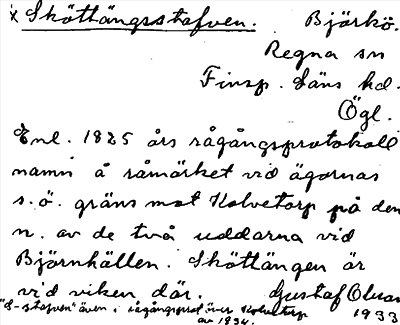 x Sköttängsstafven. Björkö.
Regna sn
Finsp. läns hd.
Ögl.
Enl. 1825 års rågångsprotokoll
namn å råmärket vid ägornas
s.ö. gräns mot Kolvetorp på den
n. av de två uddarna vid
Björnhällen. Sköttängen är
vid viken där. Gustaf Olsson
"S-stafven" även i rågångsprot. över Kolvetorp 1933
av 1834.